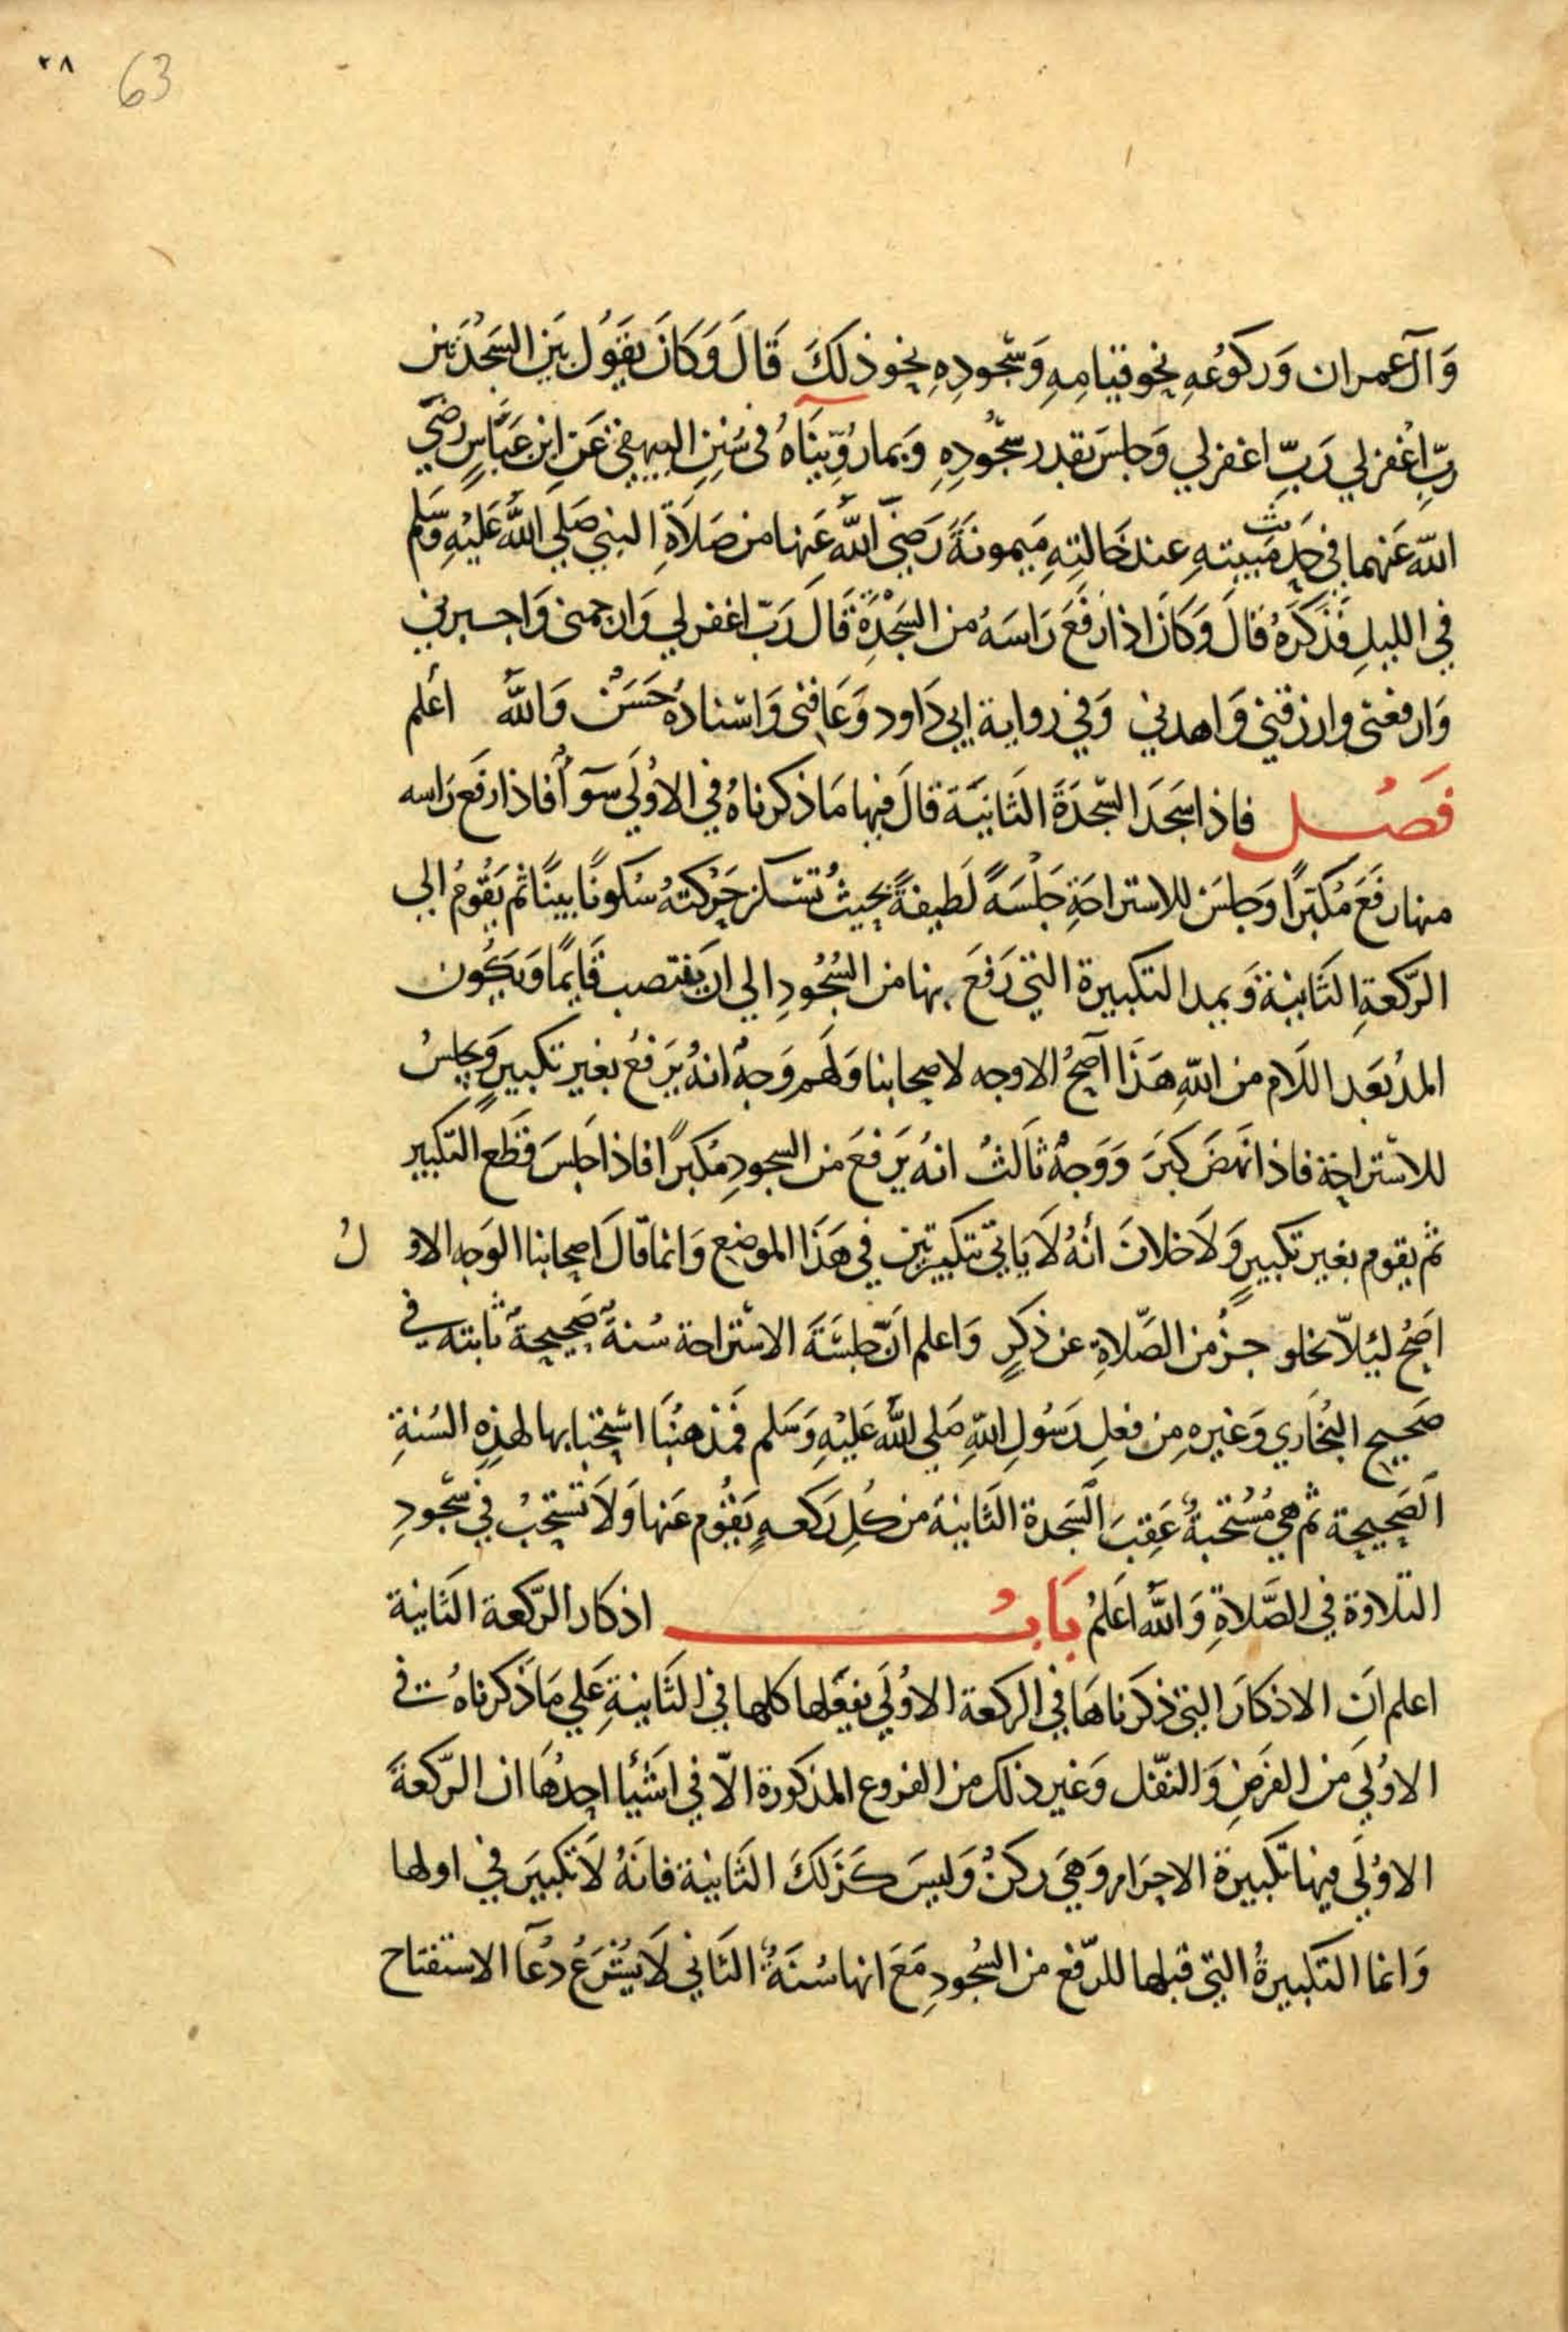 ٢٨ 63
وَآلِ عمران وَركوُعُهِ نحو قيامِهِ وَسُجُودِهِ نحو ذلكَ قَالَ وَكَانَ يَقوُل بَين السَجْدَتين
رَبِّ اغْفرلي رَبِّ اغفرلي وَجلسَ بقدر سجُودِهِ وَبما رُوِّينَاهُ في سُنِن البيهقي عَن ابن عَبَّاسٍ رضَي
اللّه عَنهما في حَديث مَبيتهِ عند خَالتِهِ مَيمونَةَ رَضيَ اللّهُ عَنها من صَلاَةِ النبي صَلي اللّهُ عَليْهِ وَسَلم
في الليلِ فَذكَرَهُ قالَ وَكانَ اذا رَفَعَ رَاسَهُ من السَجْدَةِ قَالَ رَبّ اغفر لي وَارحمني وَاجبرني
وَارفعني وارزقني وَاهدني وَفي رواية ابي دَاود وَعَافني وَاسْنادُهُ حَسَنٌ وَاللّهُ أعلم
فَصْل فاذا سَجَدَ السّجدَةَ الثَانيَة قالَ فيها مَا ذكرناهُ في الاوُلَي سَوآً فاذا رفَع رَاسه
منها رفَعَ مُكبّرًا وَجلسَ للاستراحَةِ جَلْسَةً لَطيفةً بحيثُ تسْكن حَرَكتهُ سُكونًا بَينًا ثم يَقُومُ الي
الرّكعةِ الثَانيْة وَيمد التكبيرة التي رَفعَ بها من السُجُودِ الي ان يَنتصب قَايمًا وَيَكُون
المدُ بَعَد اللَام من اللّهِ هَذَا آصحُ الاوجه لاصحابنا وَلهم وَجهٌ انهُ يَرفعُ بغير تكبيرٍ وَيجلسُ
للاسْتراحَة فاذا نَهضَ كبرَ وَوَجهٌ ثالثُ انهُ يَرفعَ من السجودِ مُكبرًا فاذا جَلسَ قَطَع التكبير
ثم يقوم بغير تكبيرٍ وَلَا خلافَ أنهُ لاَ يَاتي بتكبيرتين في هَذَا الموضِع وَانما قَالَ اصحابنا الوَجه الاولُ
اصَحُ ليَلاّ يخلو جزُ من الصَلاةِ عن ذكرٍ وَاعلم انّ جلسَةَ الاسْتراحة سُنة صَحيحةٌ ثابته في
صَحيحِ البُخَاري وَغيرهِ مِن فعلِ رَسُولِ اللّهِ صَلي اللّهُ عَليْهِ وَسَلم فمذهبُنَا اسْتحبابها لهذِهِ السُنةِ
الصَحيحة ثم هيَ مُسْتحَبةٌ عَقِبَ السَجدة الثَانيةَ من كُلِ رَكعهٍ يَقوُم عَنها وَلَا تسْتحبُ في سُجُودِ
التلاوة في الصَّلاةِ وَاللّهُ اعَلمُ بَابُ اذكار الرّكعة الثَانية
اعلم انَ الاذكارَ التي ذكَرناهَا في الركعة الاوُلَي يفعَلها كلها في الثَانيةِ عَلي مَا ذَكرناهُ في
الاوُليَ مَن الفَرضِ وَالنفّل وَغير ذلك من الفروع المذكورة الاّ في اشَيْأ احِدُهَا ان الرّكعةَ
الاوُلَي فيها تكبيرة الاحرَام وَهيَ ركنٌ وَليسَ كَذَلكَ الثَانيْة فانَهُ لاَ تكبيَر في اولها
وَانما التَكبيرةُ التي قبلها للرّفع من السُجُودِ مَعَ انها سُنَةٌ الثَاني لَا يُشرَعُ دُعَآ الاستفتاح